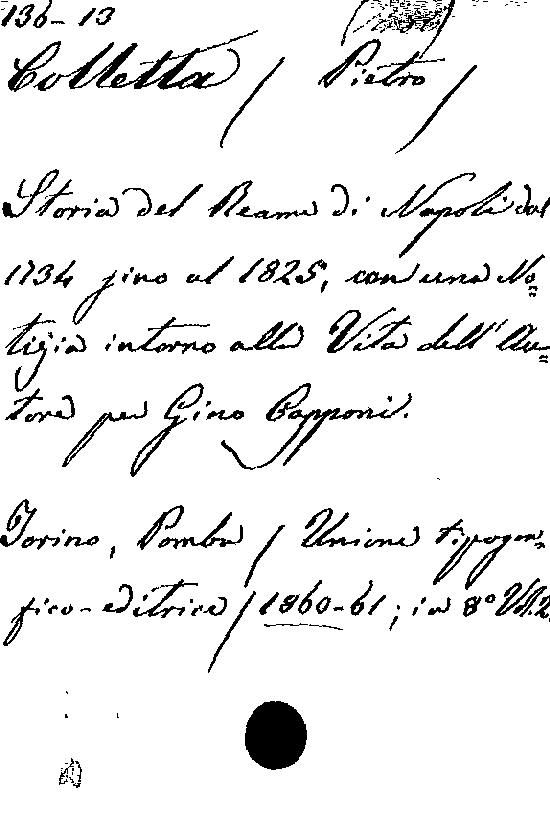 136-13
Colletta / Pietro /
Storia del Reame di Napoli dal
1734 fino al 1825, con una No=
tizia intorno alla Vita dell'Au=
tore per Gino Capponi.
Torino, Pomba / Unione tipogra=
fico-editrice / 1860-61; in 8° Vol. 2.